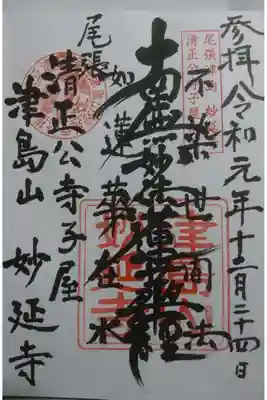 参拝令和元年十二月二十四日
尾張津島 妙延寺
清正公寺子屋
不染世間法
南無妙法蓮華経
如蓮華在水
尾張
清正公寺子屋
津島山 妙延寺